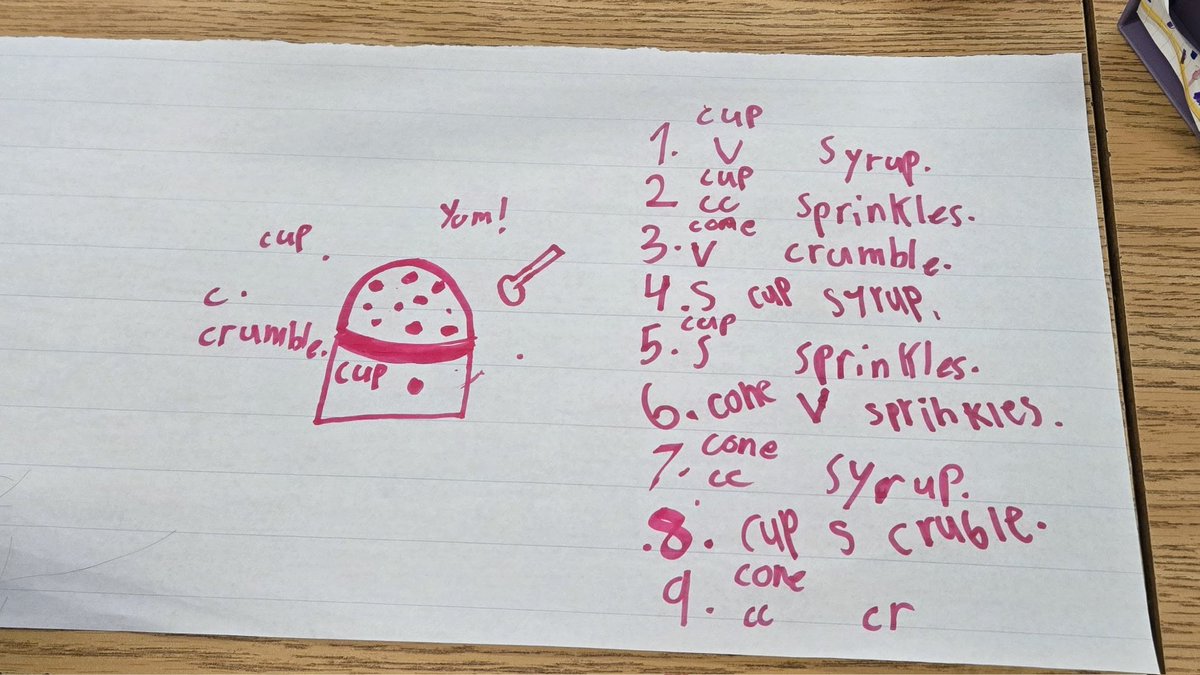 Yum!
cup.
c.
crumble.
cup
cup
1. V syrup.
cup
2 cc sprinkles.
cone
3. V crumble.
4. S cup syrup.
cup
5. S sprinkles.
6. cone V sprinkles.
cone
7. cc syrup.
8. cup S cruble.
cone
9. cc cr